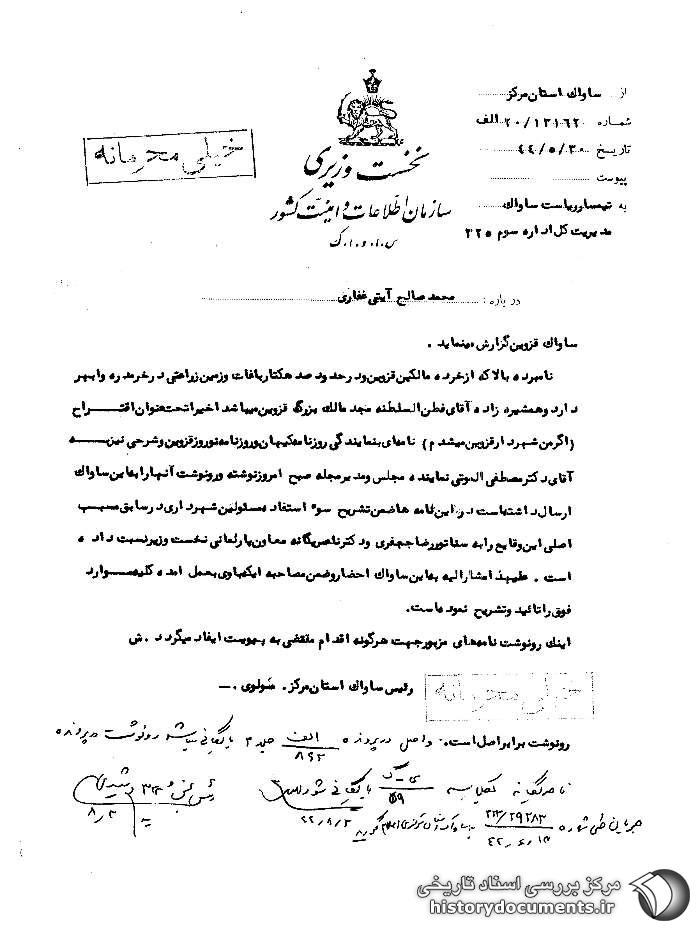 از ساواك استان مركز
شماره ۲۰/۱۳۱۶۲۰ الف
تاریخ ۴۴/۵/۳۰
پیوست
به تیمسار ریاست ساواك
مدیریت كل اداره سوم ۳۲۵
نخست وزیری
سازمان اطلاعات و امنیت کشور
س.ا.و.ا.ک
خیلی محرمانه
درباره : محمد صالح آیتی غفاری
ساواك قزوین گزارش مینماید .
نامبرده بالا كه از خرده مالكین قزوین و در حدود صد هكتار باغات و زمین زراعتی در خرمدره و ابهر
دارد و همشیره زاده آقای فطن السلطنه مجد مالك بزرگ قزوین میباشد اخیرا تحت عنوان اقتراح
(اگر من شهردار قزوین میشدم) نامه‌ای بنمایندگی روزنامه كیهان و روزنامه نوروز قزوین و شرحی نیز به
آقای دكتر مصطفی الموتی نماینده مجلس و مدیر مجله صبح امروز نوشته و رونوشت آنها را به این ساواك
ارسال داشته است در این نامه ها ضمن تشریح سوء استفاده مسئولین شهرداری در سابق مسبب
اصلی این وقایع را به سناتور رضا جعفری و دكتر ناصر یگانه معاون پارلمانی نخست وزیر نسبت داده
است . علیهذا مشارالیه به این ساواك احضار و ضمن مصاحبه ایكه با وی بعمل آمده كلیه موارد
فوق را تائید و تشریح نموده است.
اینك رونوشت نامه‌های مزبور جهت هرگونه اقدام مقتضی به پیوست ایفاد میگردد . ش
رئیس ساواك استان مركز . مولوی .ـ
خیلی محرمانه
رونوشت برابر اصل است. و اصل در پرونده الف ۸۹۲ جلد ۲ بایگانی رونوشت در پرونده
ناصر یگانه بایگانی
۸/۳
جریان طی شماره ۲۹۲۸۳
مرکز بررسی اسناد تاریخی
historydocuments.ir